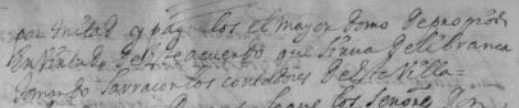 por mitad y pague los el mayor domo de propios
En Virtud deste acuerdo que sirva de libranca
tomando la rracon los contadores desta Villa =
que los señores